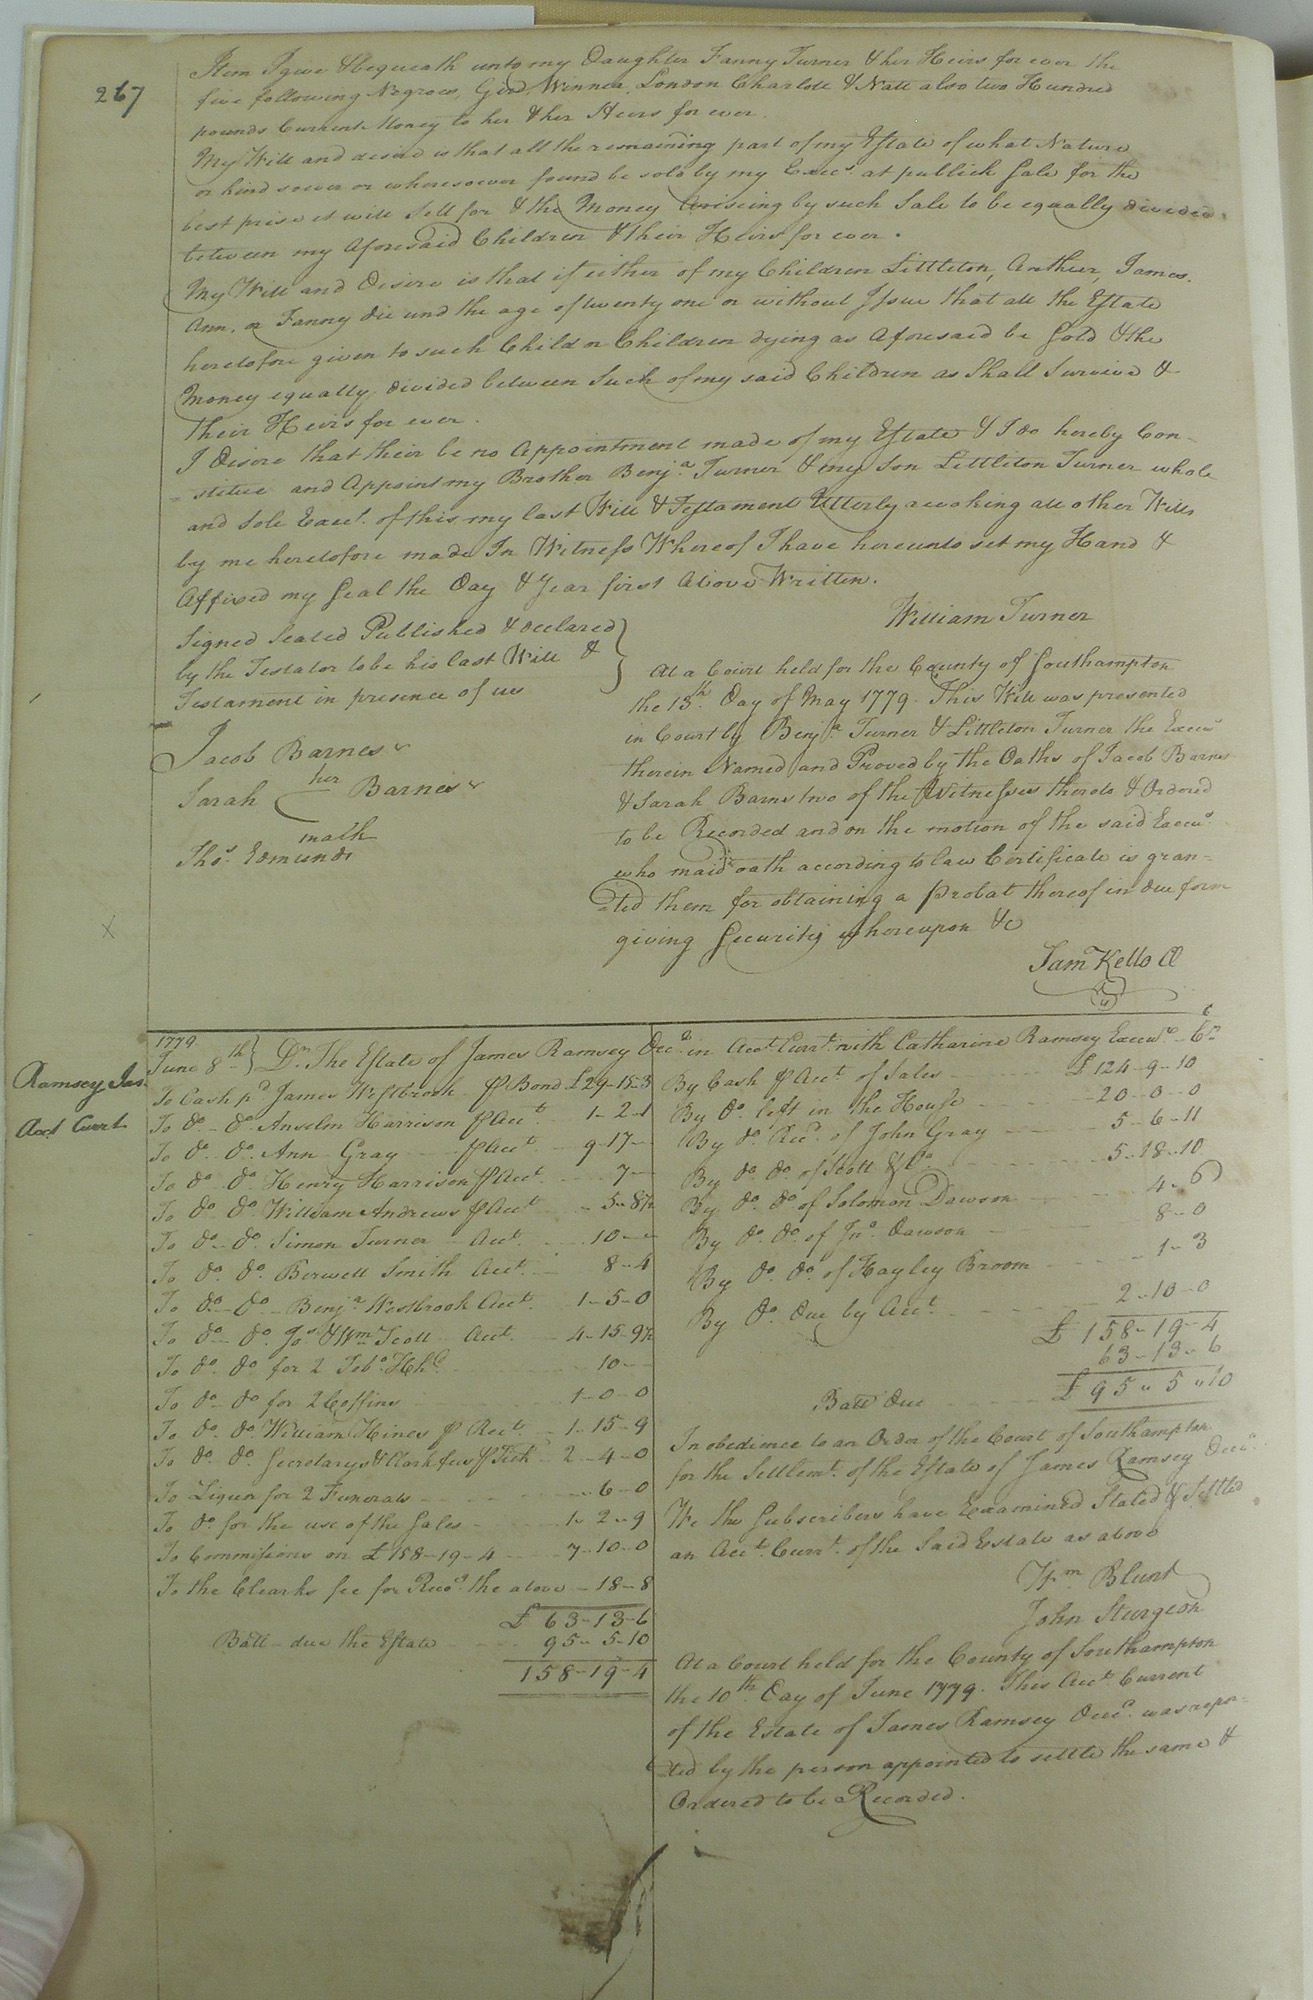 267
Item I give & bequeath unto my Daughter Fanny Turner & her Heirs for ever the
five following Negroes, Winnea, London Charlott & Natt also two Hundred
pounds Current Money to her & her Heirs for ever.
My Will and desire is that all the remaining part of my Estate of what Nature
or kind soever or wheresoever found be sold by my Execs. at publick Sale for the
best prise it will Sell for & the Money Ariseing by such Sale to be equally divided
between my Aforesaid Children & their Heirs for ever.
My Will and Desire is that if either of my Children Littleton, Arthur, James.
Ann, or Fanny die und the age of twenty one or without Issue that all the Estate
heretofore given to such Child or Children dying as Aforesaid be Sold & the
Money equally divided between Such of my said Children as Shall Survive &
their Heirs for ever.
I Desire that their be no Appointment made of my Estate & I do hereby Con-
=stitue and Appoint my Brother Benja. Turner & my Son Littleton Turner whole
and Sole Exect. of this my last Will & Testament Utterly revoking all other Wills
by me heretofore made In Witness Whereof I have hereunto set my Hand &
Affixed my Seal the Day & Year first Above Written.
William Turner
Signed Sealed Published & declared
by the Testator to be his last Will &
Testament in presence of us
Jacob Barnes
her
Sarah Barnes
mark
Thos. Edmunds
At a Court held for the County of Southampton
the 13th. Day of May 1779. This Will was presented
in Court by Benja. Turner & Littleton Turner the Execrs
therein Named and Proved by the Oaths of Jacob Barnes
& Sarah Barns two of the Witnesses thereto & Ordered
to be Recorded and on the motion of the said Execrs.
who maid oath according to law Certificate is gran=
=ted them for obtaining a Probat thereof in due form
giving Security whereupon &c
Saml Kello CC
Ramsey Jas.
Acct Currt
1779
June 8th } Dr. The Estate of James Ramsey Decd. in Acct Currt. with Catharine Ramsey Execux. Cr.
To Cash pd James Westbrook p Bond £29-15-3
To Do. Do. Anselm Harrison p Acct. 1-2-1
To Do. Do. Ann Gray p Acct. 9-17-
To Do. Do. Henry Harrison p Acct. 7-
To Do. Do. William Andrews p Acct 5-8½
To Do. Do. Simon Turner Acct. 10-
To Do. Do. Berwell Smith Acct. 8-4
To Do. Do. Benja. Westbrook Acct. 1-5-0
To Do. Do. Jos. & Wm. Scott Acct. 4-15-9½
To Do. Do. for 2 Tobo. Hhd. 10-
To Do. Do. for 2 Coffins 1-0-0
To Do. Do. William Hines p Rect. 1-15-9
To Do. Do. Secretarys & Clark fees p Tick 2-4-0
To Liquer for 2 Funerals 6-0
To Do. for the use of the Sales 1-2-9
To Commissions on £158-19-4 7-10-0
To the Clearks fee for Recog. the above 18-8
£ 63-13-6
Ball due the Estate 95-5-10
158-19-4
By Cash p Acct. of Sales £124-9-10
By Do. left in the House 20-0-0
By Do. Recd. of John Gray 5-6-11
By Do. Do. of Scott & Co. 5-18-10
By Do. Do. of Solomon Dawson 4-6
By Do. Do. of Jno. Dawson 8-0
By Do. Do. of Hayley Broom 1-3
By Do. Due by Acct. 2-10-0
£158-19-4
63-13-6
Ball Due £95"5"10
In obedience to an Order of the Court of Southampton
for the Settlemt. of the Estate of James Ramsey Decd.
We the Subscribers have Examined Stated & Settled
an Acct. Currt. of the Said Estate as above
Wm. Blunt
John Sturgeon
At a Court held for the County of Southampton
the 10th Day of June 1779. This Acct. Current
of the Estate of James Ramsey Decd. was repor=
=ted by the person appointed to settle the same &
Ordered to be Recorded.